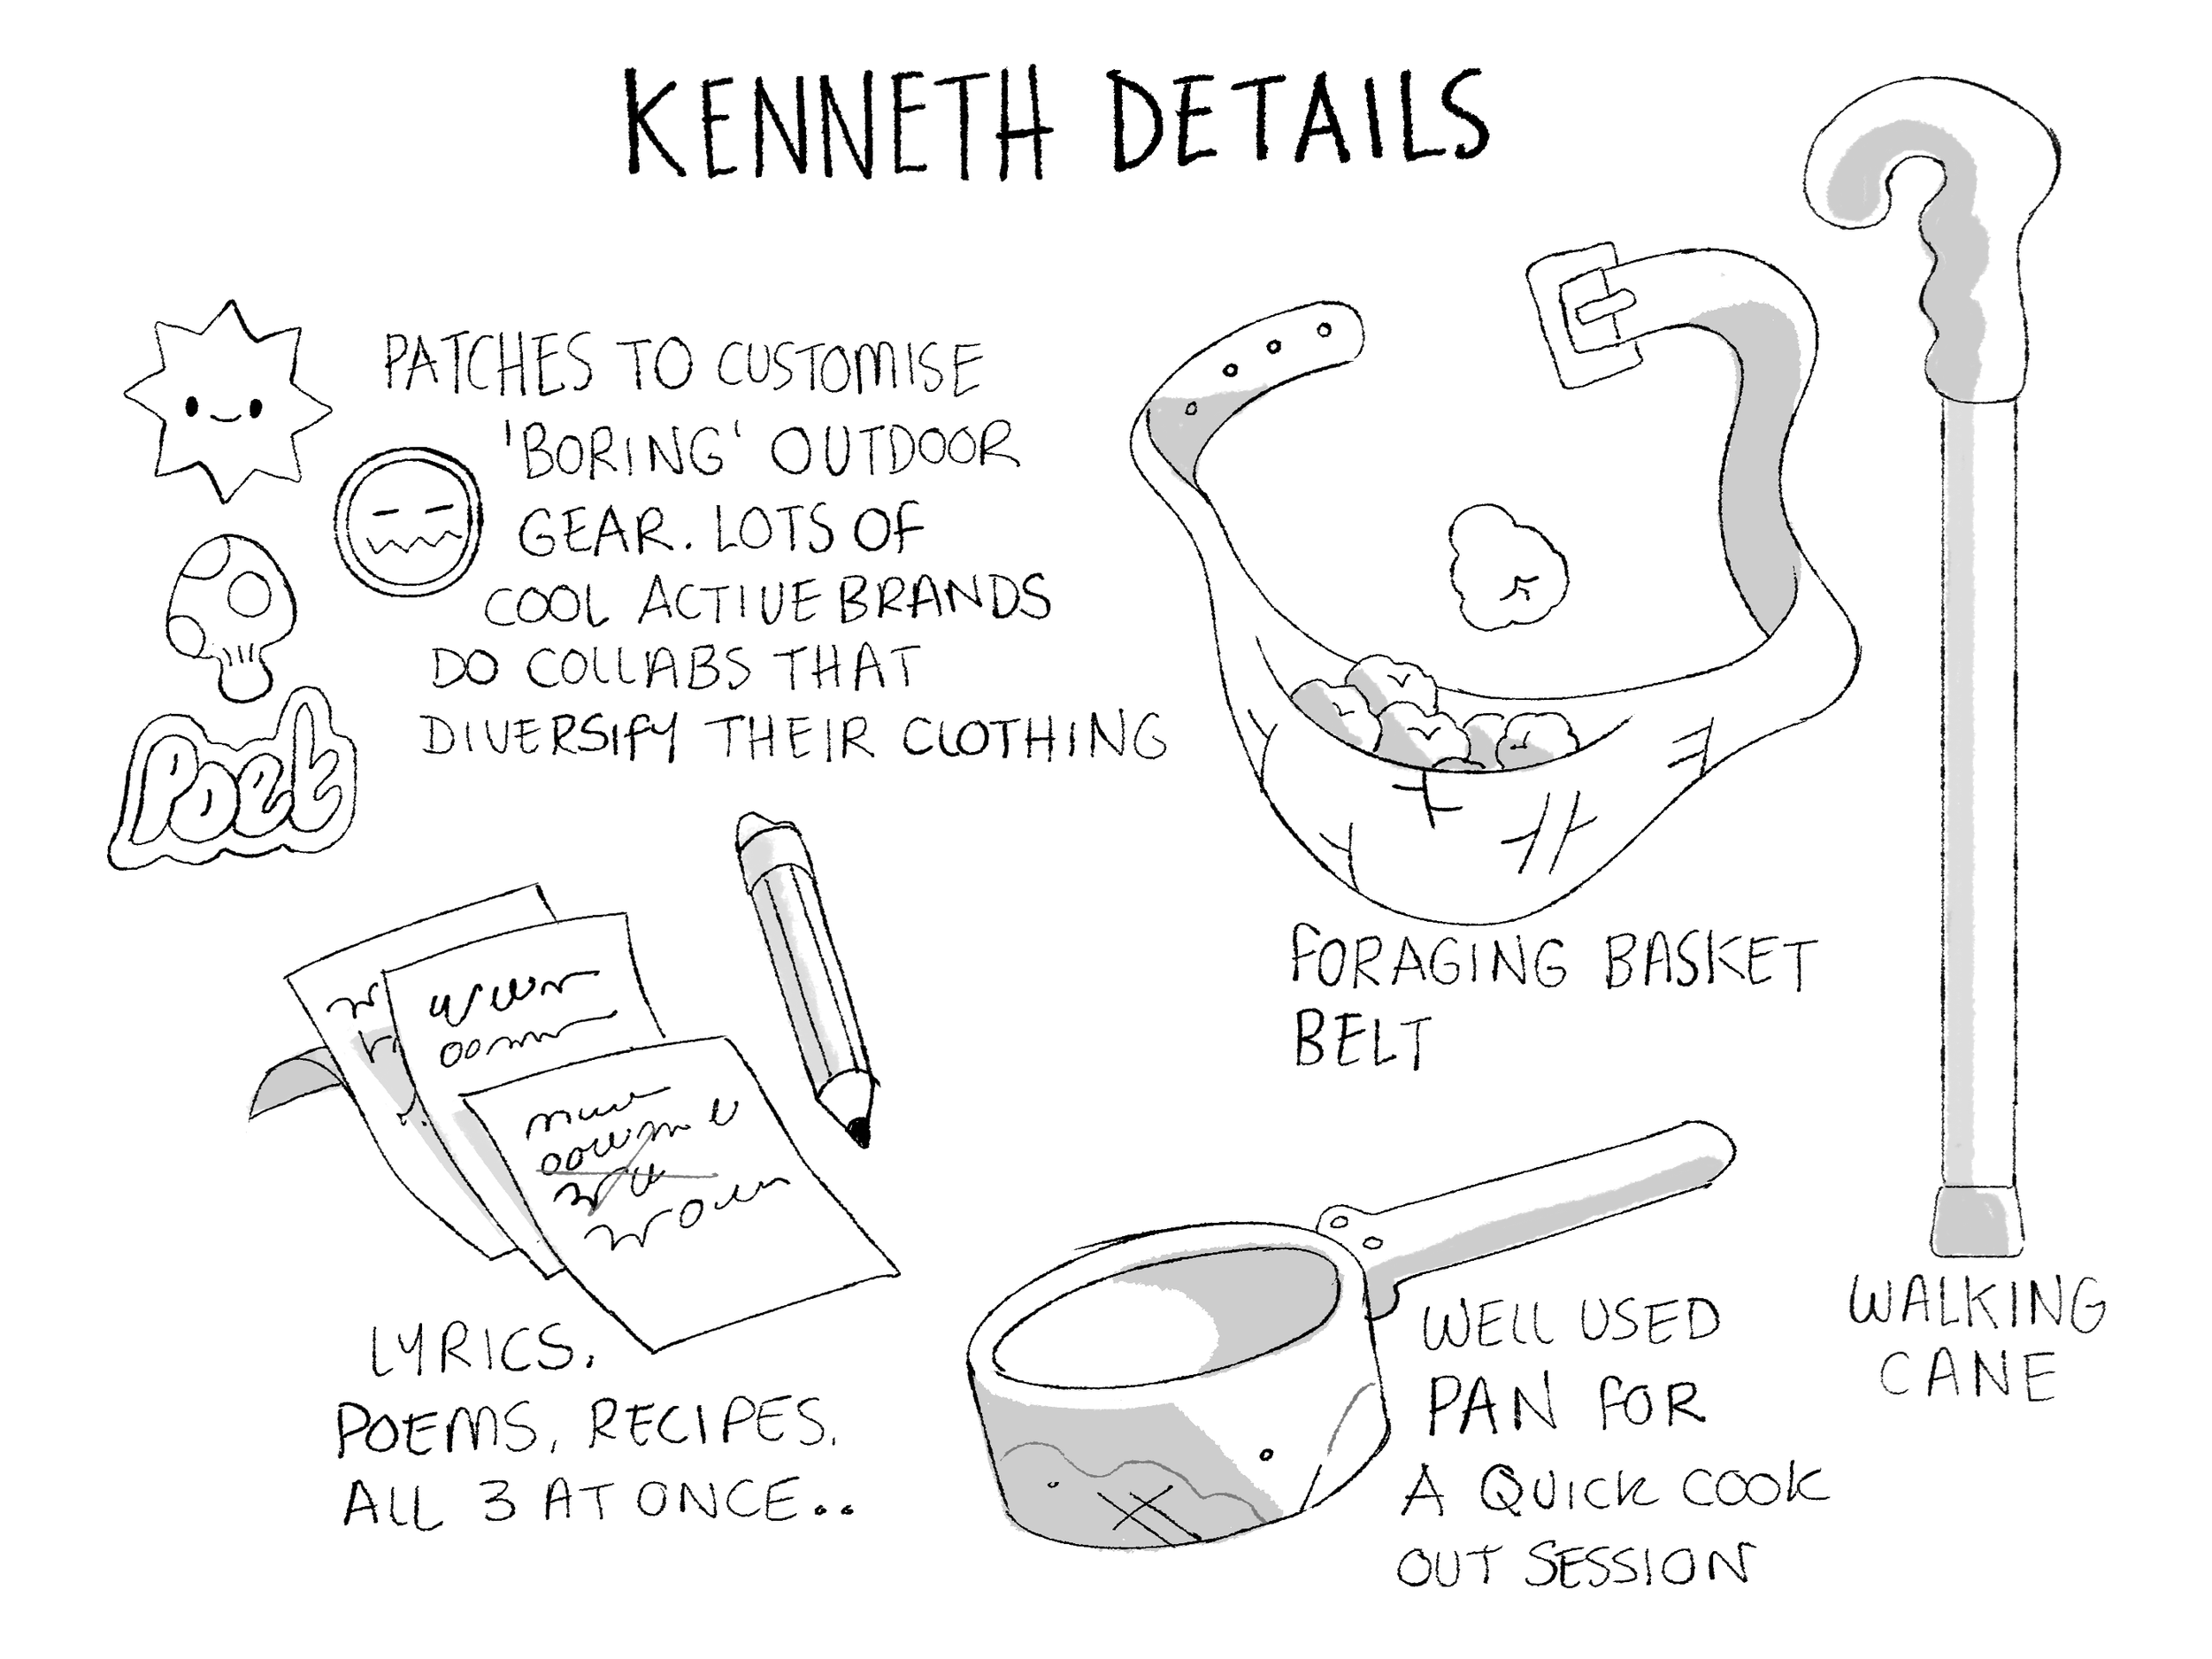 KENNETH DETAILS
PATCHES TO CUSTOMISE
'BORING' OUTDOOR
GEAR. LOTS OF
COOL ACTIVE BRANDS
DO COLLABS THAT
DIVERSIFY THEIR CLOTHING
Poet
FORAGING BASKET
BELT
LYRICS.
POEMS, RECIPES.
ALL 3 AT ONCE..
WELL USED
PAN FOR
A QUICK COOK
OUT SESSION
WALKING
CANE